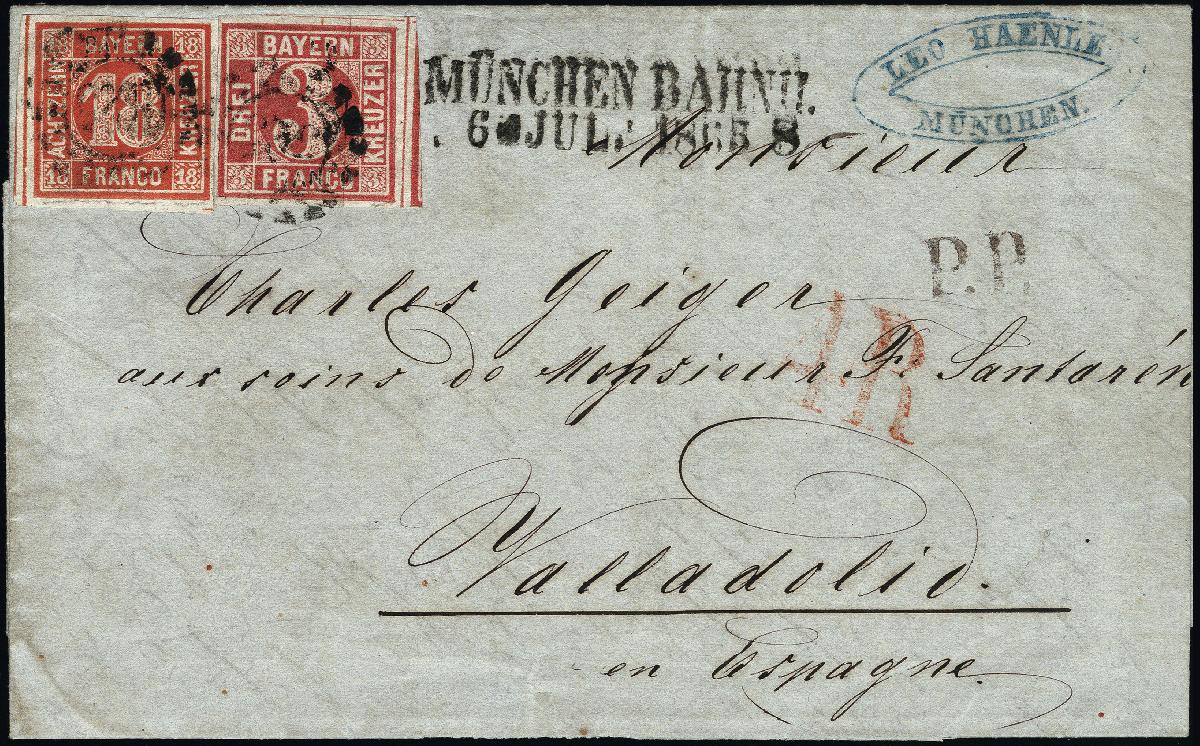 18 BAYERN 18
ACHTZEHN 18 KREUZER
18 FRANCO 18
3 BAYERN 3
DREI 3 KREUZER
3 FRANCO 3
MÜNCHEN BAHNH.
6 JUL. 1865 8
LEO HAENLE
MÜNCHEN.
Monsieur
P.P.
Charles Geiger
aux soins de Monsieur F. Santarén
4R
Valladolid.
en Espagne.